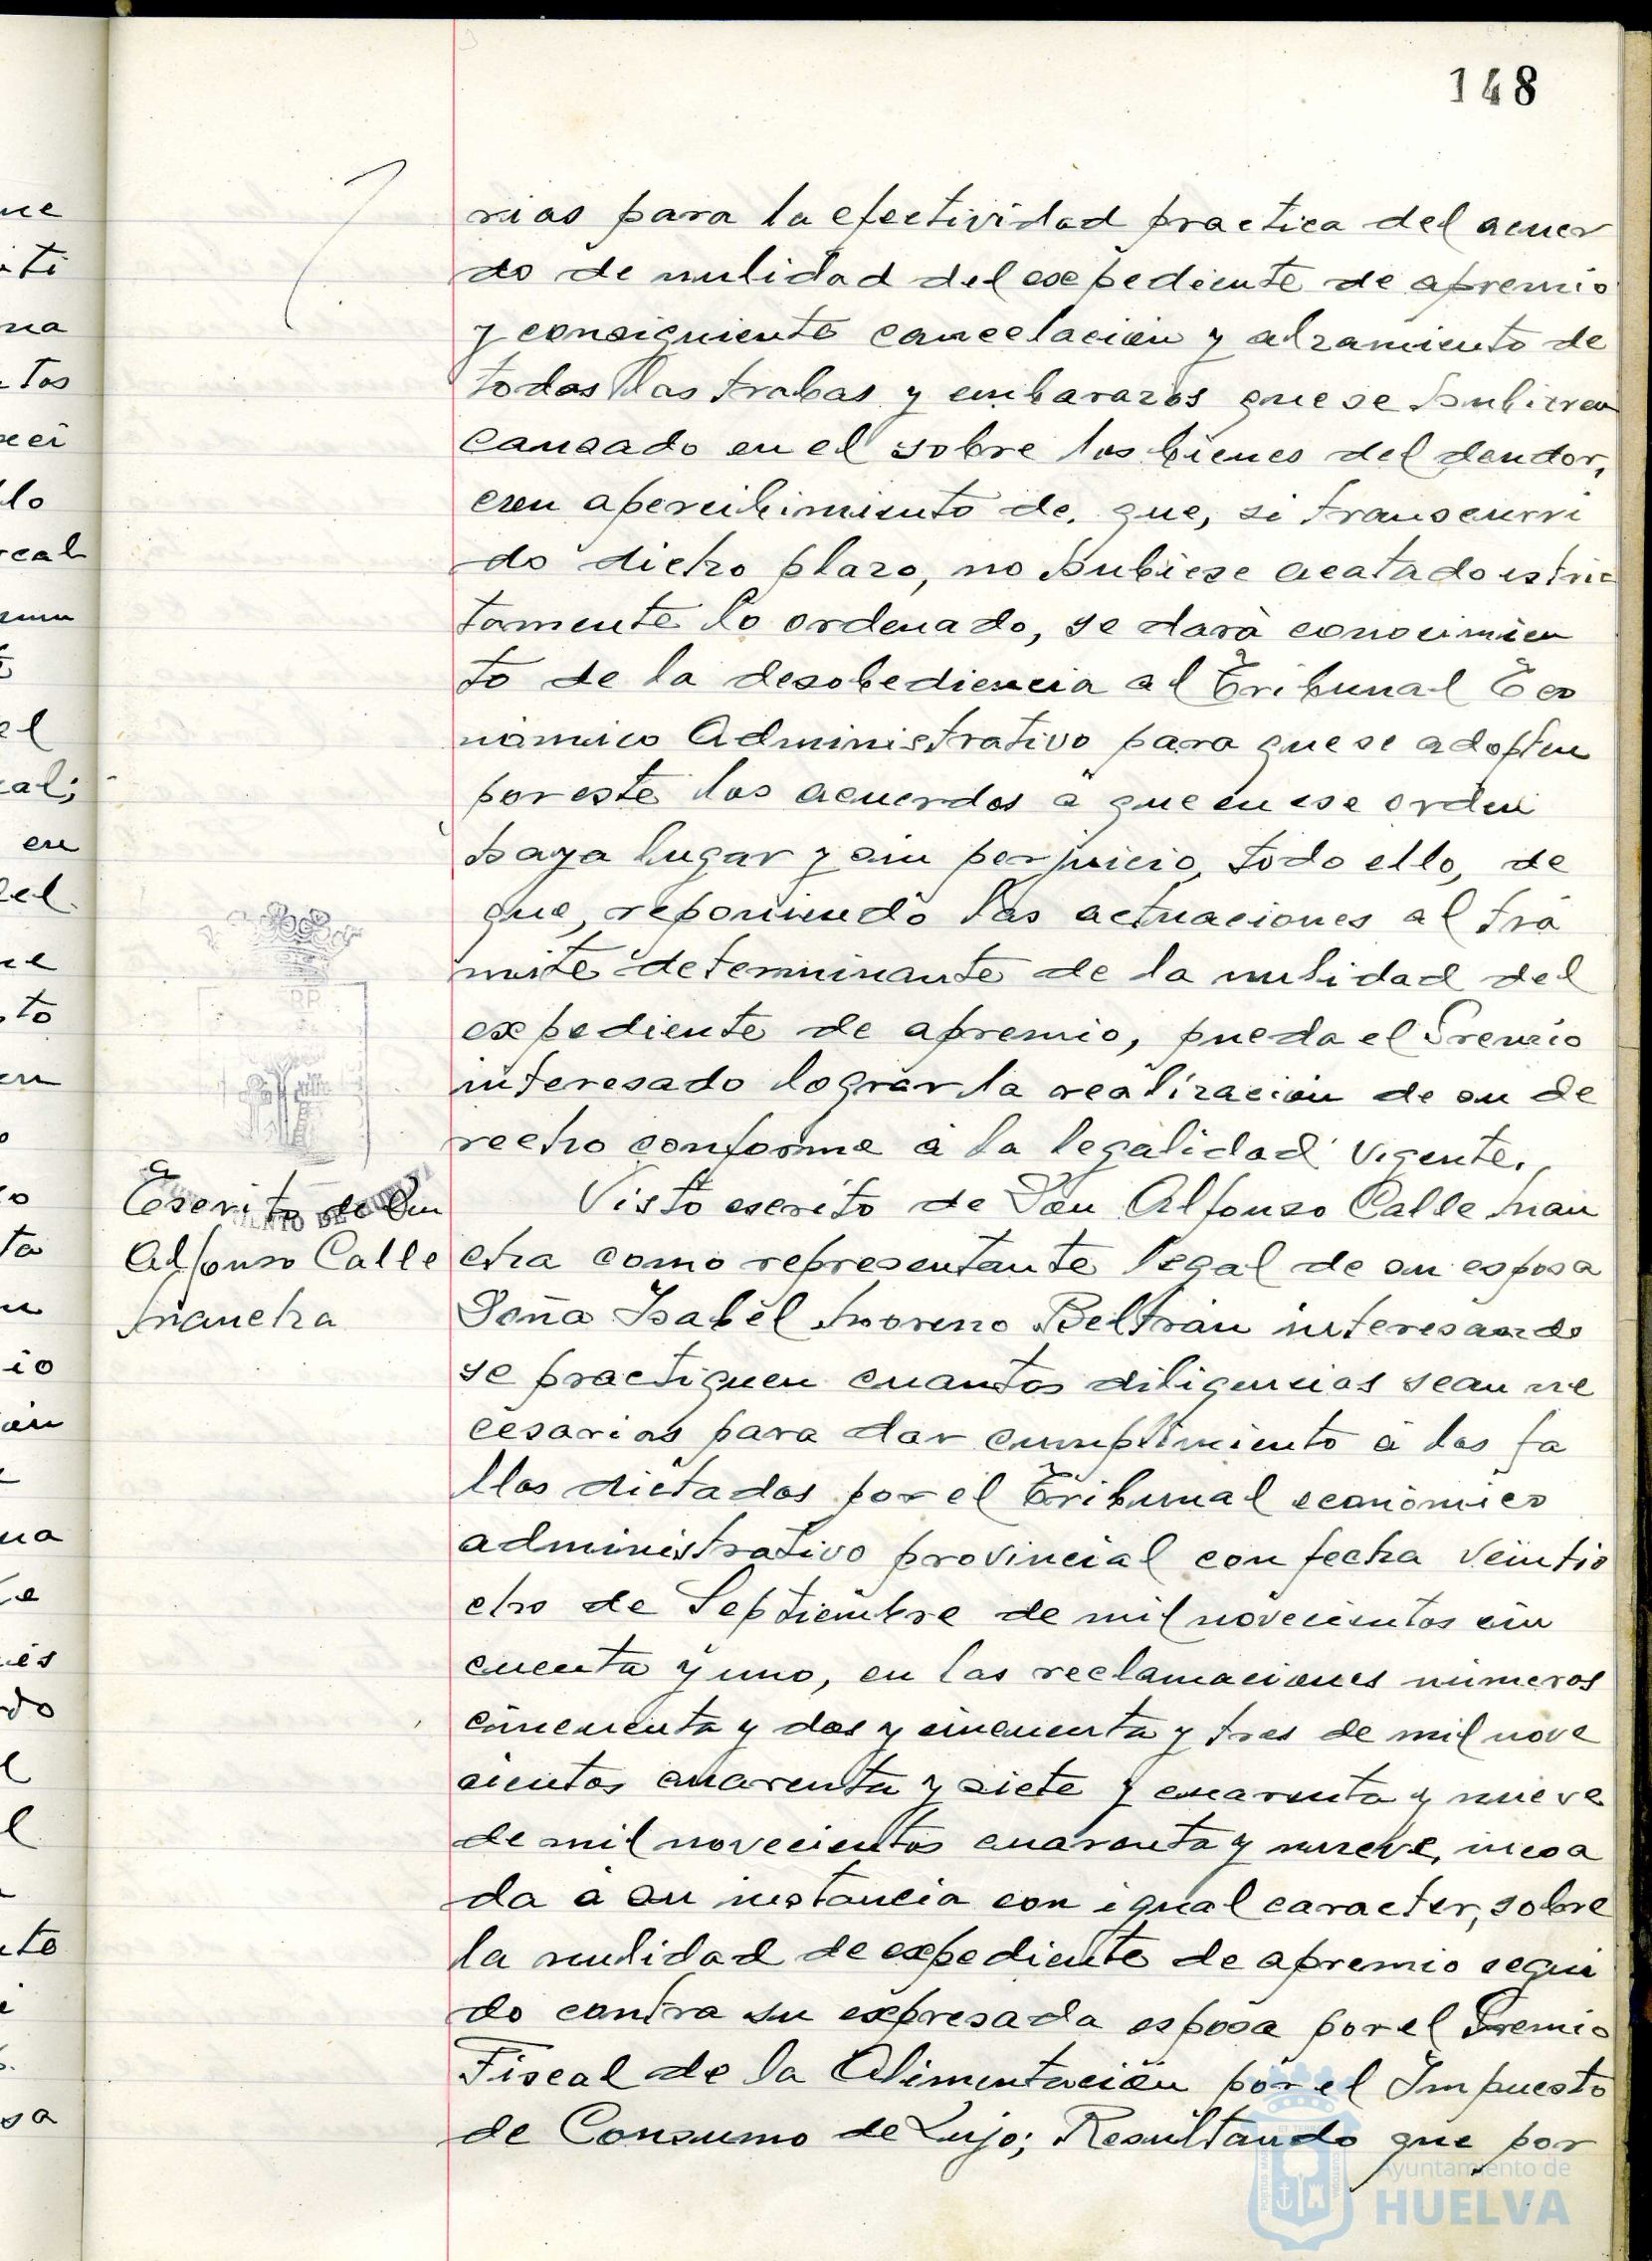 148
rias para la efectividad practica del acuer
do de nulidad del expediente de apremio
y consiguiente cancelación y alzamiento de
todas las trabas y embarazos que se hubieren
causado en el sobre los bienes del deudor,
con apercibimiento de, que, si transcurri
do dicho plazo, no hubiese acatado estric
tamente lo ordenado, se dará conocimien
to de la desobediencia al Tribunal Eco
nómico Administrativo para que se adopten
por este los acuerdos á que en ese orden
haya lugar y sin perjuicio, todo ello, de
que, reponiendo las actuaciones al trá
mite determinante de la nulidad del
expediente de apremio, pueda el Gremio
interesado lograr la realización de su de
recho conforme á la legalidad vigente.
Escrito de Don
Alfonso Calle
Mancha
Visto escrito de Don Alfonso Calle Man
cha como representante legal de su esposa
Doña Isabel Moreno Beltrán interesando
se practiquen cuantas diligencias sean ne
cesarias para dar cumplimiento á los fa
llos dictados por el Tribunal económico
administrativo provincial con fecha veintio
cho de Septiembre de mil novecientos cin
cuenta y uno, en las reclamaciones números
cincuenta y dos y cincuenta y tres de mil nove
cientos cuarenta y siete y cuarenta y nueve
de mil novecientos cuarenta y nueve, incoa
da á su instancia con igual caracter, sobre
la nulidad de expediente de apremio segui
do contra su expresada esposa por el Gremio
Fiscal de la Alimentación por el Impuesto
de Consumo de Lujo; Resultando que por
Ayuntamiento de
HUELVA